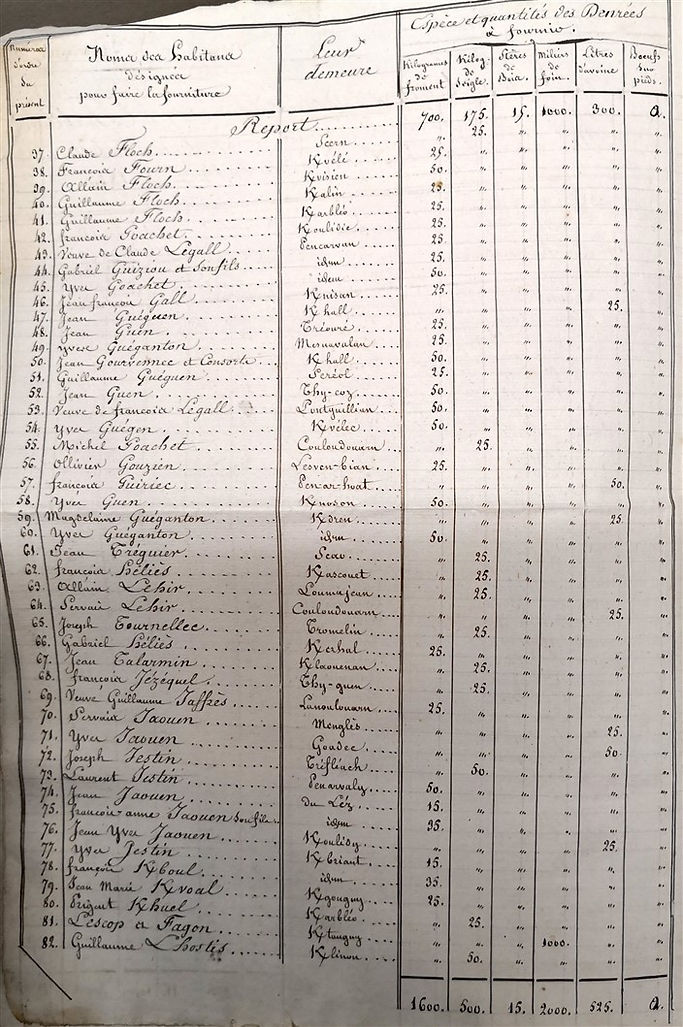 Espèce et quantités des Denrées à fournir.
Numéros d'ordre du présent | Noms des habitans désignés pour faire la fourniture | Leur demeure | Kilogrames de froment | Kilog. de seigle | Stères de Bois | Miliers de foin | Litres d'avoine | Boeufs sur pieds
Report | 700. | 175. | 15. | 1000. | 300. | 2.
37. Claude Floch | Scern | „ | 25. | „ | „ | „ | „
38. François Fourn | Kvélé | 25. | „ | „ | „ | „ | „
39. Allain Floch | Kvisien | 50. | „ | „ | „ | „ | „
40. Guillaume Floch | Kalin | 25. | „ | „ | „ | „ | „
41. Guillaume Floch | Karbléo | 25. | „ | „ | „ | „ | „
42. françois Goachet | Koulidic | 25. | „ | „ | „ | „ | „
43. Veuve de Claude Légall | Pencarvan | 25. | „ | „ | „ | „ | „
44. Gabriel Guiziou et son fils | idem | 25. | „ | „ | „ | „ | „
45. Yves Goachet | idem | 50. | „ | „ | „ | „ | „
46. Jean françois Gall | Knisan | 25. | „ | „ | „ | „ | „
47. Jean Guéguen | K hall | „ | „ | „ | „ | 25. | „
48. Jean Guen | Tréouré | 25. | „ | „ | „ | „ | „
49. yves Guéganton | Mesnavalan | 25. | „ | „ | „ | „ | „
50. Jean Gourvennec et Consorts | K hall | 50. | „ | „ | „ | „ | „
51. Guillaume Guéguen | Séréol | 25. | „ | „ | „ | „ | „
52. Jean Guen | Thy-coz | 50. | „ | „ | „ | „ | „
53. Veuve de françois Légall | Pontguillien | 50. | „ | „ | „ | „ | „
54. Yves Guégen | Kvélec | 50. | „ | „ | „ | „ | „
55. Michel Goachet | Couloudouarn | „ | 25. | „ | „ | „ | „
56. Ollivier Gouzien | Lesven-bian | 25. | „ | „ | „ | „ | „
57. françois Guiriec | Pen-ar-hoat | „ | „ | „ | „ | 50. | „
58. Yves Guen | Knoson | 50. | „ | „ | „ | „ | „
59. Magdelaine Guéganton | Kdren | „ | „ | „ | „ | 25. | „
60. Yves Guéganton | idem | 50. | „ | „ | „ | „ | „
61. Jean Tréguier | Scao | „ | 25. | „ | „ | „ | „
62. françois Héliès | Kascouet | „ | 25. | „ | „ | „ | „
63. Allain Léhir | Loumujean | „ | 25. | „ | „ | „ | „
64. Servais Léhir | Couloudouarn | „ | „ | „ | „ | 25. | „
65. Joseph Tournellec | Tromelin | „ | 25. | „ | „ | „ | „
66. Gabriel Héliès | Kerhal | 25. | „ | „ | „ | „ | „
67. Jean Talarmin | Klaouenan | „ | 25. | „ | „ | „ | „
68. françois Jézéquel | Thy-guen | „ | 25. | „ | „ | „ | „
69. Veuve Guillaume Jaffrès | Lanoulouarn | 25. | „ | „ | „ | „ | „
70. Servais Jaouen | Menglès | „ | „ | „ | „ | 25. | „
71. Yves Jaouen | Goadec | „ | „ | „ | „ | 50. | „
72. Joseph Jestin | Trifléach | „ | 50. | „ | „ | „ | „
73. Laurent Jestin | Penarvaly | 50. | „ | „ | „ | „ | „
74. Jean Jaouen | du Léz | 15. | „ | „ | „ | „ | „
75. françois-anne Jaouen son fils | idem | 35. | „ | „ | „ | „ | „
76. Jean Yves Jaouen | Koulidy | „ | „ | „ | „ | 25. | „
77. Yves Jestin | Kbriant | 15. | „ | „ | „ | „ | „
78. françois Kboul | idem | 35. | „ | „ | „ | „ | „
79. Jean Marie Kvoal | Kgouguy | 25. | „ | „ | „ | „ | „
80. Prigent Khuel | Karbléo | „ | 25. | „ | „ | „ | „
81. Léscop et Fagon | Ktanguy | „ | „ | „ | 1000. | „ | „
82. Guillaume L'hostis | Klinou | „ | 50. | „ | „ | „ | „
1600. | 500. | 15. | 2000. | 525. | 2.